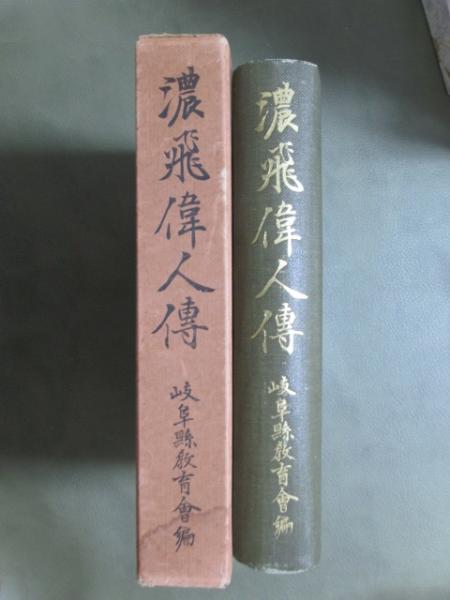 濃飛偉人傳
岐阜縣教育會編
濃飛偉人傳
岐阜縣教育會編